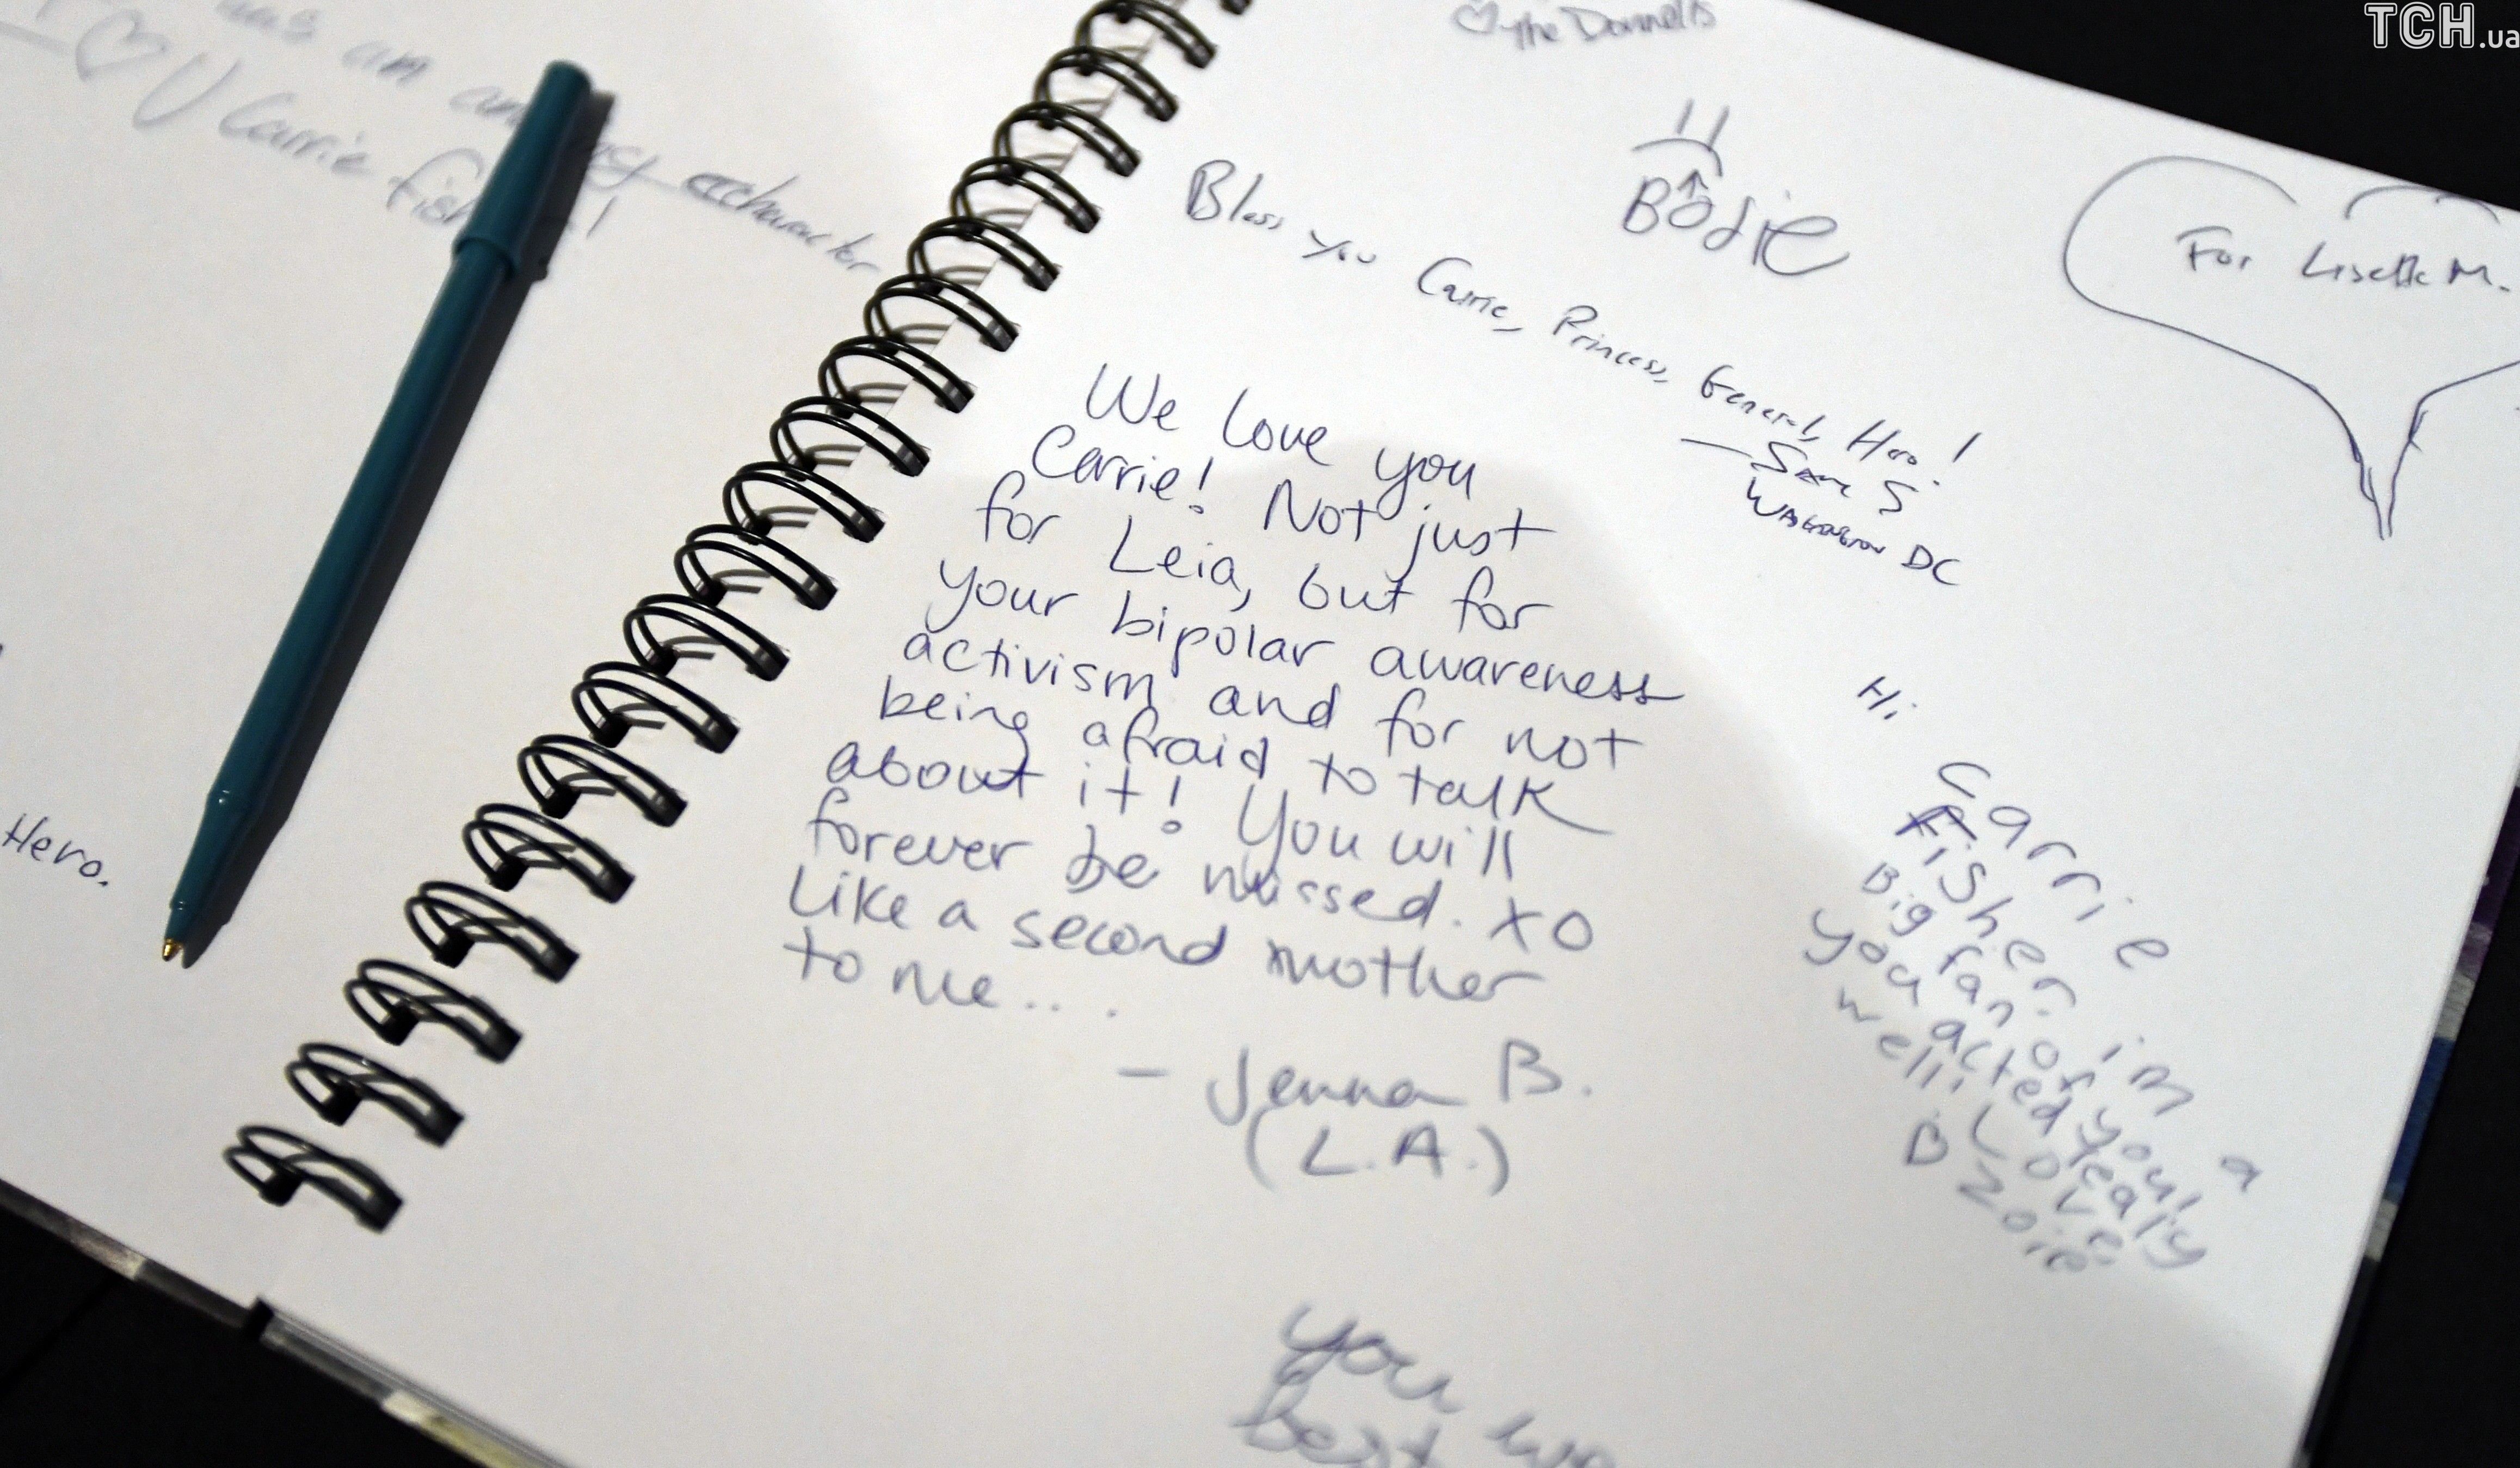 TCH.ua
an
♡ U Carrie fish !
character
Hero.
♡ the Donnells
Bodie
Bless you Carrie, Princess, General, Hero!
— Sam S
Washington DC
For Lisette M.
We love you
Carrie! Not just
for Leia, but for
your bipolar awareness
activism and for not
being afraid to talk
about it! You will
forever be missed. XO
Like a second mother
to me....
— Jenna B.
(L.A.)
Hi
Carrie
Fisher. im a
Big fan of you!
you acted realy
well! Love
Zoie
you
best